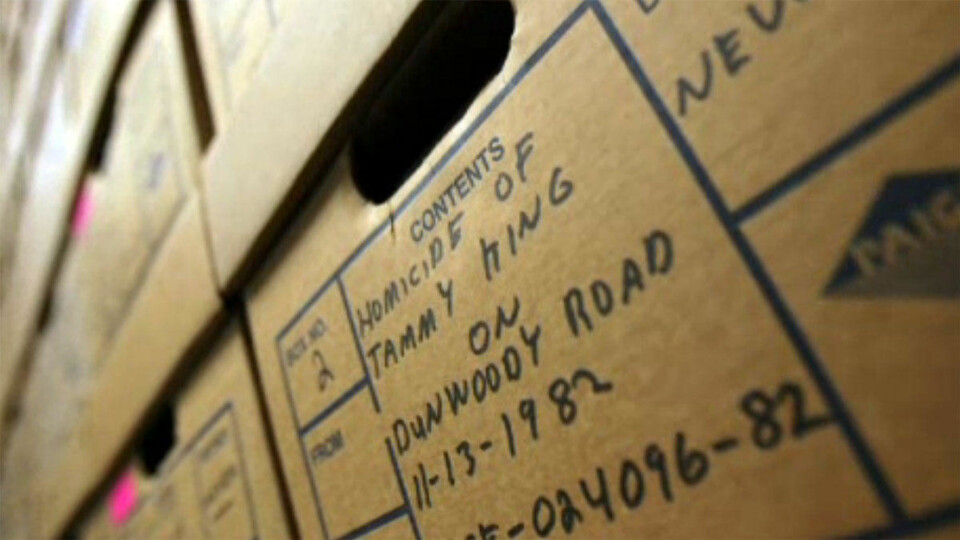 CONTENTS
HOMICIDE OF
TAMMY KING
ON
DUNWOODY ROAD
11-13-1982
-024096-82
BOX NO.
2
FROM